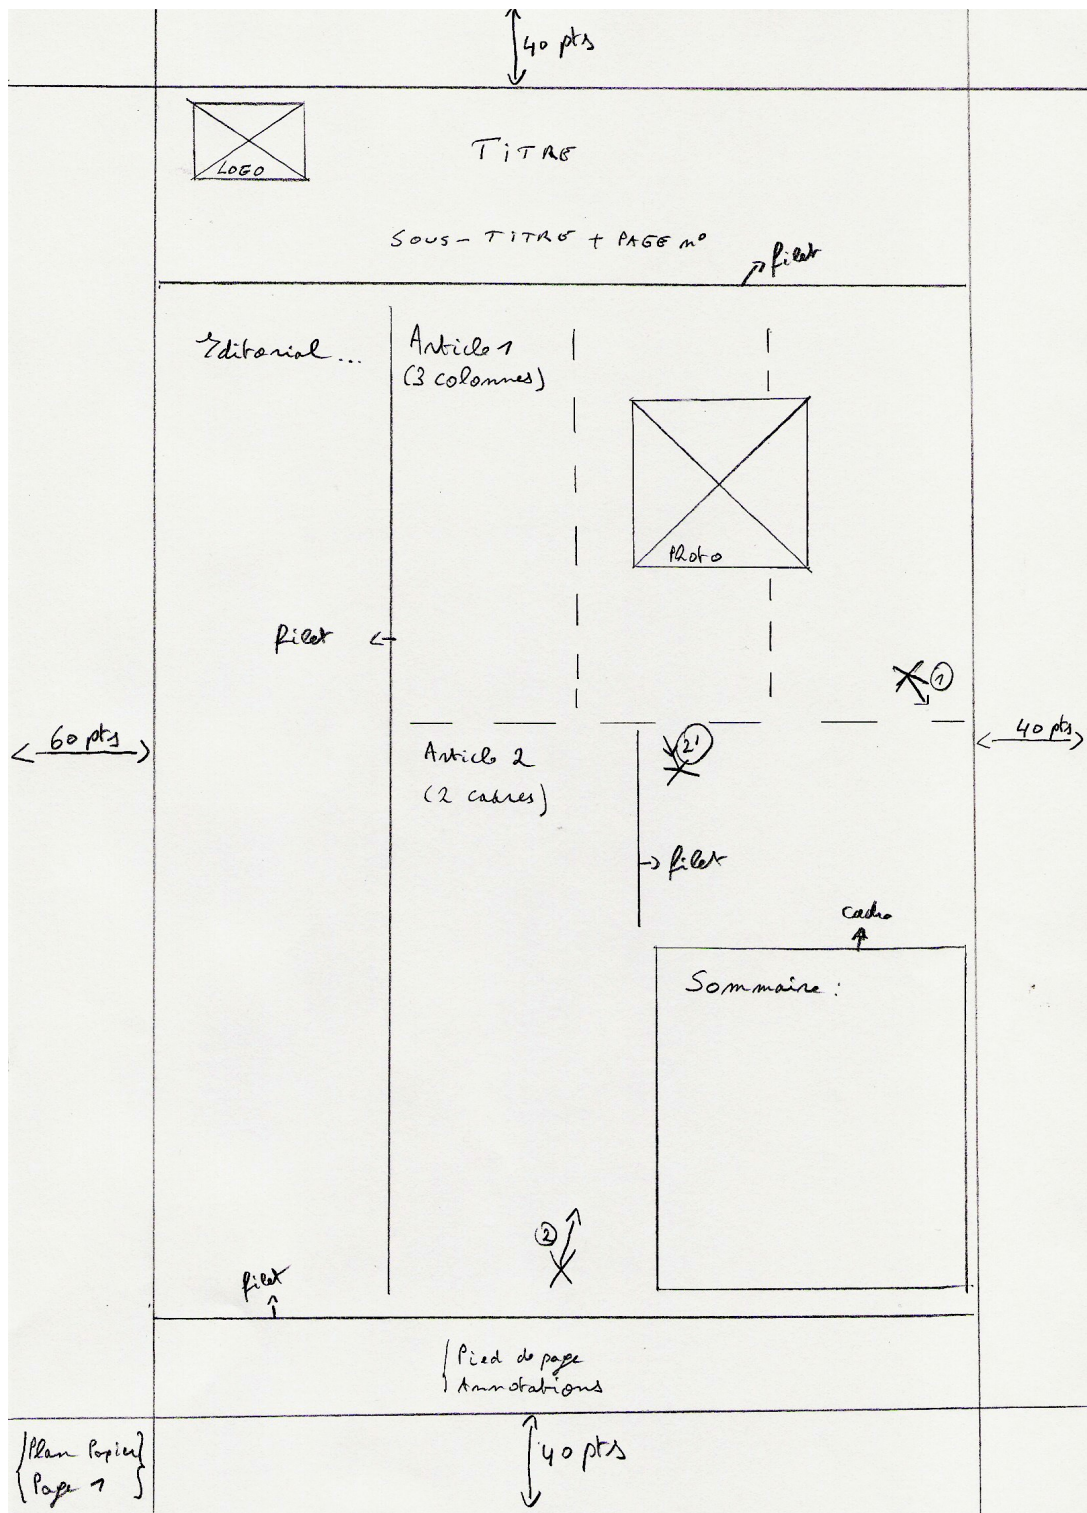 40 pts
TITRE
LOGO
SOUS-TITRE + PAGE n°
filet
Editorial...
Article 1
(3 colonnes)
PHOTO
filet
1
60 pts
40 pts
Article 2
(2 cadres)
2'
filet
cadre
Sommaire :
2
filet
Pied de page
Annotations
Plan Papier
Page 1
40 pts